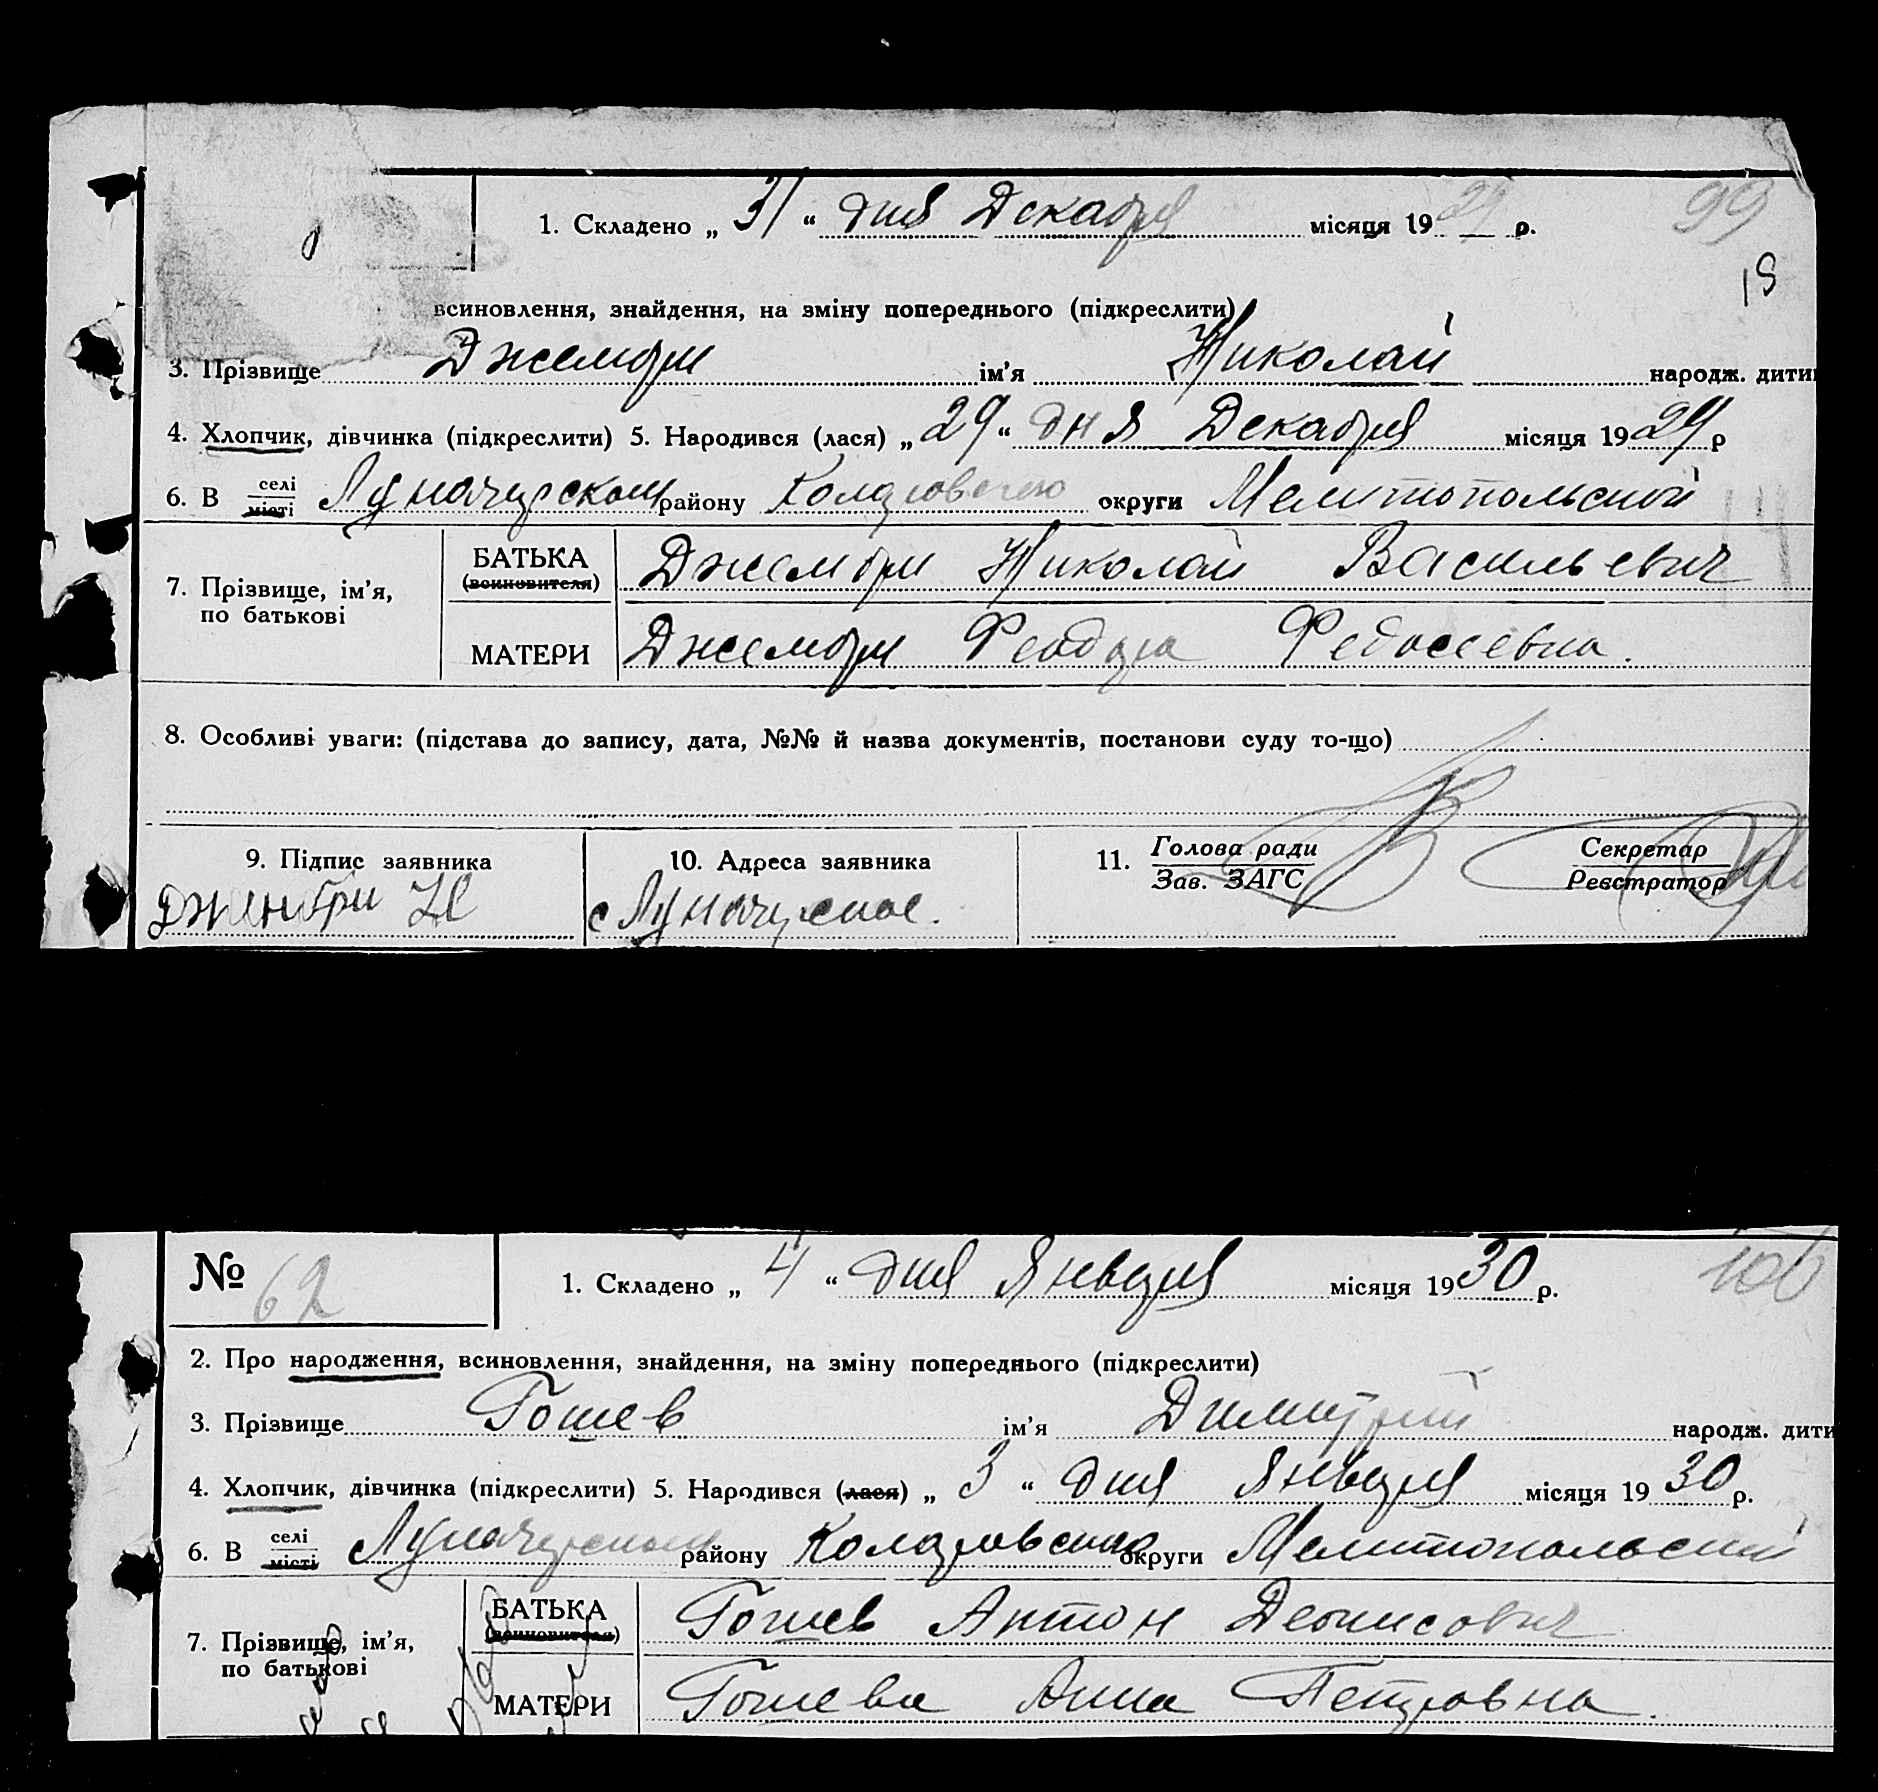 1. Складено „ 31 “ дня Декабря місяця 1929 р. 99
19
всиновлення, знайдення, на зміну попереднього (підкреслити)
3. Прізвище Джембри ім’я Николай народж. дити
4. Хлопчик, дівчинка (підкреслити) 5. Народився (лася) „ 29 “ дня Декабря місяця 1929 р
6. В селі місті Луначарском району Коларовского округи Мелитопольской
7. Прізвище, ім’я, по батькові БАТЬКА (всиновителя) Джембри Николай Васильевич
МАТЕРИ Джембри Феодора Федосеевна.
8. Особливі уваги: (підстава до запису, дата, №№ й назва документів, постанови суду то-що)
9. Підпис заявника 10. Адреса заявника 11. Голова ради Зав. ЗАГС Секретар Реєстратор
Джембри Н с Луначарское.
№ 62 1. Складено „ 4 “ дня Января місяця 1930 р. 100
2. Про народження, всиновлення, знайдення, на зміну попереднього (підкреслити)
3. Прізвище Гошев ім’я Димитрий народж. дити
4. Хлопчик, дівчинка (підкреслити) 5. Народився (лася) „ 3 “ дня Января місяця 1930 р.
6. В селі місті Луначарском району Коларовского округи Мелитопольской
7. Прізвище, ім’я, по батькові БАТЬКА (всиновителя) Гошев Антон Денисович
МАТЕРИ Гошева Анна Петровна.